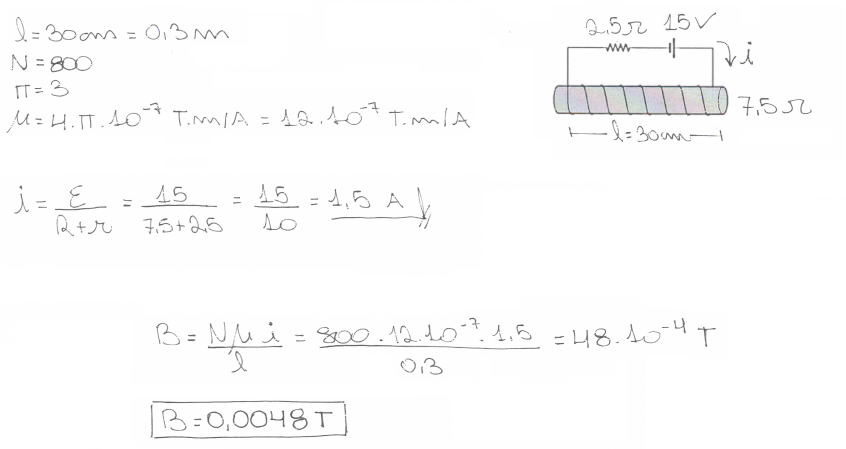 l = 30cm = 0,3m
N = 800
π = 3
μ = 4.π.10⁻⁷ T.m/A = 12.10⁻⁷ T.m/A
2,5Ω 15V
i
7,5Ω
l = 30cm
i = ε/(R+r) = 15/(7,5+2,5) = 15/10 = 1,5 A
B = Nμi/l = 800.12.10⁻⁷.1,5/0,3 = 48.10⁻⁴ T
B = 0,0048T